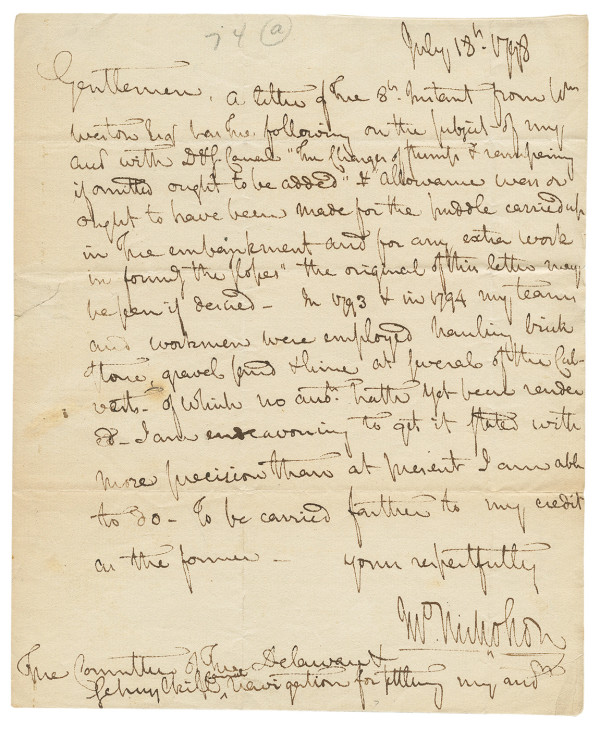 74 (a)
July 18th 1798
Gentlemen. a letter of The 8th Instant from Wm
Weston Esqr has The following on the subject of my
acct with D & S Canal "The Charges of stumps &
if omitted ought to be added" & "allowance was or
ought to have been made for the puddle carried up
in The embankment and for any extra work
in formg the slopes" the original of this letter may
be seen if desired - In 1793 & in 1794 my teams
and workmen were employed hauling brick
stone, gravel sand & lime at several of the Cul-
verts - of which no acct hath yet been render
ed - I am endeavoring to get it stated with
more precision than at present I am able
to do - To be carried farther to my credit
as the former - yours respectfully
Jno Nicholson
The Committee of The Delaware &
Schuylkill Canal Navigation for settling my acct